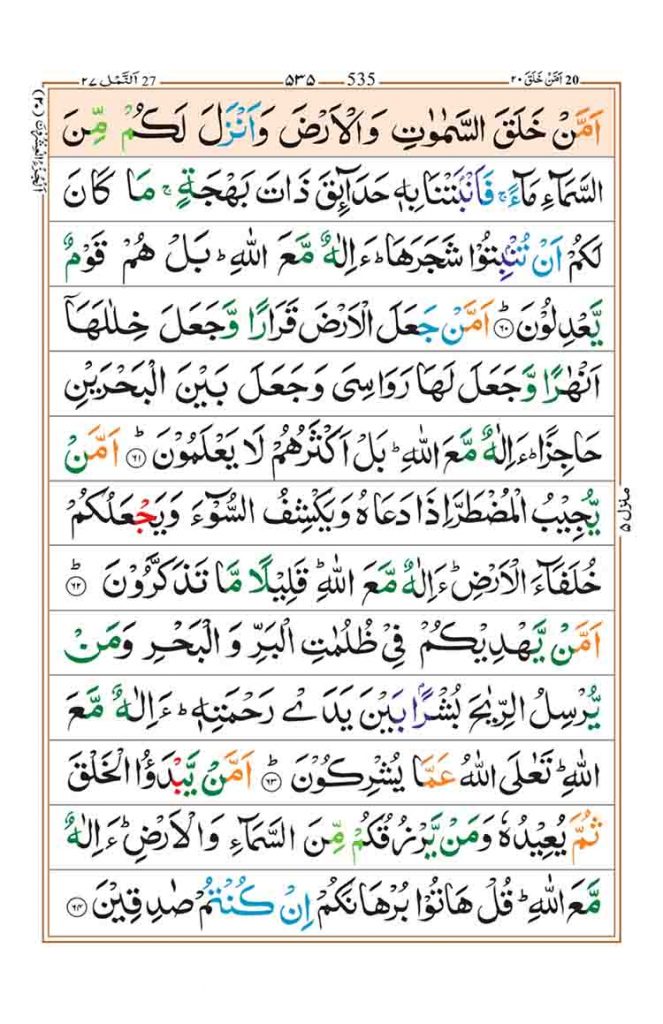 20 اَمَّنْ خَلَقَ ٢٠ 535 ۵۳۵ 27 اَلنَّمْل ٢٧
اَمَّنْ خَلَقَ السَّمٰوٰتِ وَالْاَرْضَ وَاَنْزَلَ لَكُمْ مِّنَ
السَّمَآءِ مَآءً ۚ فَاَنْۢبَتْنَا بِهٖ حَدَآئِقَ ذَاتَ بَهْجَةٍ ۚ مَا كَانَ
لَكُمْ اَنْ تُنْۢبِتُوْا شَجَرَهَا ؕ ءَاِلٰهٌ مَّعَ اللّٰهِ ؕ بَلْ هُمْ قَوْمٌ
يَّعْدِلُوْنَ ؕ‏ ﴿۶۰﴾ اَمَّنْ جَعَلَ الْاَرْضَ قَرَارًا وَّجَعَلَ خِلٰلَهَاۤ
اَنْهٰرًا وَّجَعَلَ لَهَا رَوَاسِىَ وَجَعَلَ بَيْنَ الْبَحْرَيْنِ
حَاجِزًا ؕ ءَاِلٰهٌ مَّعَ اللّٰهِ ؕ بَلْ اَكْثَرُهُمْ لَا يَعْلَمُوْنَ ؕ ﴿۶۱﴾ اَمَّنْ
يُّجِيْبُ الْمُضْطَرَّ اِذَا دَعَاهُ وَيَكْشِفُ السُّوْٓءَ وَيَجْعَلُكُمْ
خُلَفَآءَ الْاَرْضِ ؕ ءَاِلٰهٌ مَّعَ اللّٰهِ ؕ قَلِيْلًا مَّا تَذَكَّرُوْنَ ؕ ﴿۶۲﴾
اَمَّنْ يَّهْدِيْكُمْ فِىْ ظُلُمٰتِ الْبَرِّ وَ الْبَحْرِ وَمَنْ
يُّرْسِلُ الرِّيٰحَ بُشْرًۢا بَيْنَ يَدَىْ رَحْمَتِهٖ ؕ ءَاِلٰهٌ مَّعَ
اللّٰهِ ؕ تَعٰلَى اللّٰهُ عَمَّا يُشْرِكُوْنَ ؕ ﴿۶۳﴾ اَمَّنْ يَّبْدَؤُا الْخَلْقَ
ثُمَّ يُعِيْدُهٗ وَمَنْ يَّرْزُقُكُمْ مِّنَ السَّمَآءِ وَالْاَرْضِ ؕ ءَاِلٰهٌ
مَّعَ اللّٰهِ ؕ قُلْ هَاتُوْا بُرْهَانَكُمْ اِنْ كُنْتُمْ صٰدِقِيْنَ ﴿۶۴﴾
اَلْجُزْءُ الْعِشْرُوْنَ (٢٠)
منزل ۵